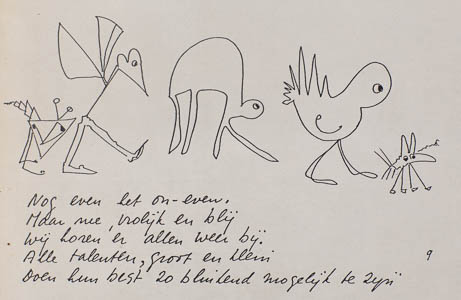 Nog even het on-even.
Maar nee, vrolijk en blij
Wij horen er allen weer bij.
Alle talenten, groot en klein
Doen hun best zo bluitend mogelijk te zijn
9